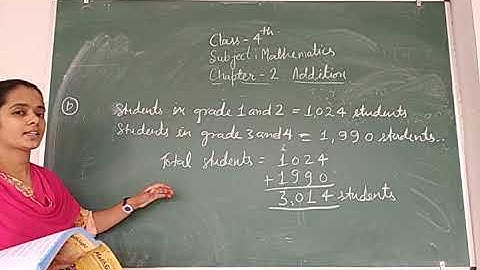 Class - 4th
Subject : Mathematics
Chapter - 2 Addition
b) Students in grade 1 and 2 = 1,024 students
Students in grade 3 and 4 = 1,990 students..
Total students = 1024
+1990
3,014 students